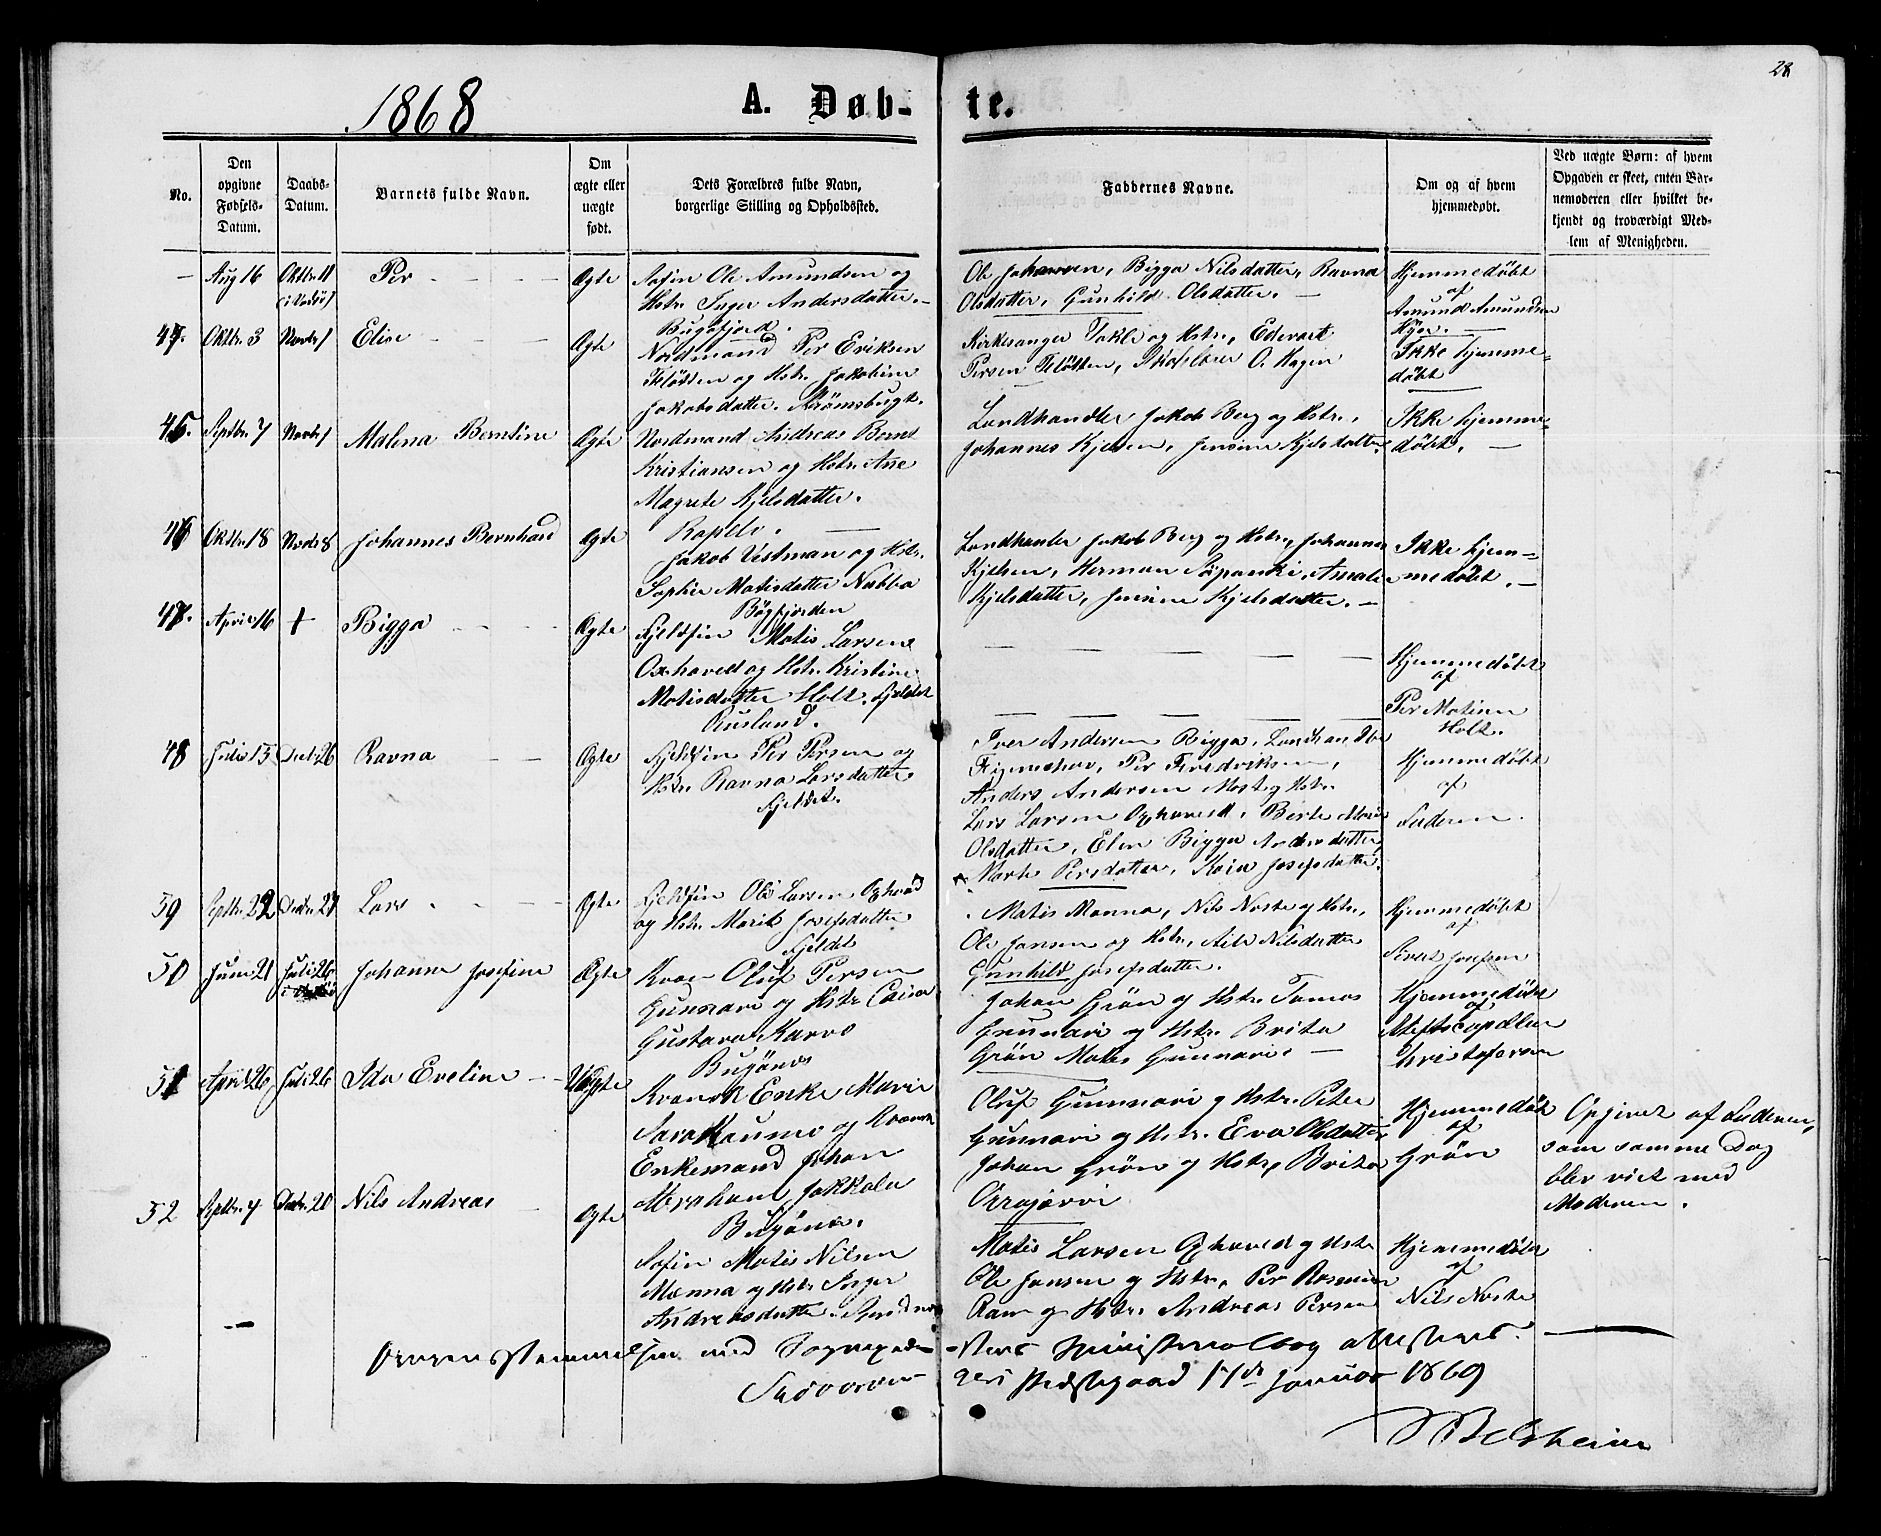 28
1868 A. Døb-te.
No.
Den opgivne Fødsels-Datum.
Daabs-Datum.
Barnets fulde Navn.
Om ægte eller uægte født.
Dets Forældres fulde Navn, borgerlige Stilling og Opholdssted.
Faddernes Navne.
Om og af hvem hjemmedøbt.
Ved uægte Børn: af hvem Opgaven er skeet, enten Barnemoderen eller hvilket bekjendt og troværdigt Medlem af Menigheden.
— Aug 16 Oktbr. 11 Per Ægte
Søfin Ole Amundsen og
Hstr. Inger Andersdatter. —
Bugøfjord.
Ole Johansen, Bigga Nilsdatter, Ravna
Olsdatter, Gunhild Olsdatter. —
Hjemmedøbt
af
Amund Amundsen
Oktbr. 3 Novbr 1 Elise Ægte
Nordmand Per Eriksen
Fløtten og Hstr. Jakobine
Jakobsdatter. Strømsbugt.
Kirkesanger Takle og Hstr., Edevart
Persen Fløtten, Skolelærer O. Hagen
Ikke hjemme-
døbt
45. Septbr. 7 Novbr 1 Malena Berntine Ægte
Nordmand Andreas Bernt
Kristiansen og Hstr. Ane
Magrete Kjelsdatter.
Landhandler Jakob Berg og Hstr.,
Johannes Kjelsen, Jensine Kjelsdatter.
Ikke hjemme-
døbt. —
46 Oktbr. 18 Novbr 8 Johannes Bernhard Ægte
Jakob Vestman og Hstr.
Sophie Matisdatter Nabba
Bøgfjorden
Landhandler Jakob Berg og Hstr., Johannes
Kjelsen, Herman, Amalie
Kjelsdatter, Jensine Kjelsdatter. —
Ikke hjem-
medøbt. —
47. April 16 + Bigga Ægte
Fjeldfin Matis Larsen
Oxhoved og Hstr. Kristine
Matisdatter Holt. Fjeldet
Rusland.
Hjemmedøbt
af
Per Matisen
Holt.
48 Juli 13 Decbr 26 Ravna Ægte
Fjeldfin Per Persen og
Hstr. Ravna Larsdatter
Fjeldet.
Iver Andersen Bigga, Landhandler
Per Fredriksen,
Anders Andersen Moste og Hstr.
Lars Larsen Oxhoved, Berte Marie
Olsdatter, Elen Bigga Andersdatter,
Marte Persdatter, Karen Josefsdatter.
Hjemmedøbt
af
Faderen.
59 Septbr. 22 Decbr. 27 Lars Ægte
Fjeldfin Ole Larsen Oxhoved
og Hstr. Marit Josefsdatter
Fjeldet
Matis Manna, Nils Noste og Hstr.,
Ole Jansen og Hstr., Nilsdatter
Gunhild Josefsdatter.
Hjemmedøbt
af
Josefsen
50 Juni 21 Juli 26 Johanne Josefine Ægte
Kvæn Oluf Persen
Gunnari og Hstr. Caisa
Gustava Karvo
Bugønes
Johan Grøn og Hstr. Tomas
Gunnari og Hstr. Brita
Grøn Matis Gunnari. —
Hjemmedøbt
af
Stiftscapellan
Kristofersen
51 April 26 Juli 26 Ida Eveline Uægte
Kvænsk Enke Marie
Sara Raumo og Kvænsk
Enkemand Johan
Abraham Jokkala
Bugønes.
Oluf Gunnari og Hstr. Peter
Gunnari og Hstr. Eva Olsdatter
Johan Grøn og Hstr., Brita
Orrajærvi
Hjemmedøbt
af
Grøn
Opgivet af Faderen,
som samme Dag
blev viet med
Moderen.
52 Septbr. 4 Decbr. 20 Nils Andreas Ægte
Søfin Matis Nilsen
Manna og Hstr. Inger
Andreasdatter.
Matis Larsen Oxhoved og Hstr
Ole Jansen og Hstr., Per Rasmus
og Hstr. Andreas Persen
Hjemmedøbt
af
Nils Noste
Overensstemmelsen med Sognepræstens Ministerialbog attesteres.
Sydvarangers Præstegaard 17de Januar 1869
J Balsheim